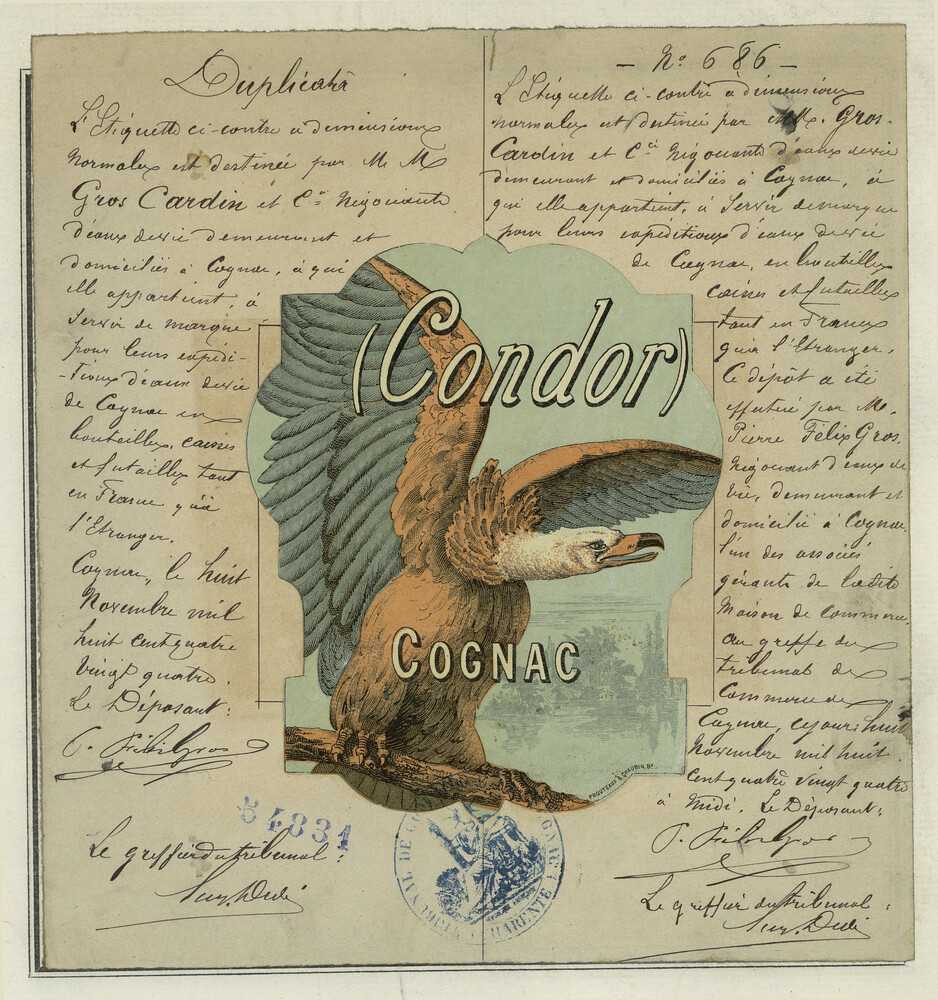 Duplicata
L'Etiquette ci-contre a dimensions
normales est destinée par M. M
Gros Cardin et Cie Négociants
d'eaux de vie demeurant et
domiciliés à Cognac, à qui
elle appartient, à
servir de marque
pour leurs expédi-
-tions d'eaux de vie
de Cognac en
bouteilles, caisses
et futailles tant
en France qu'à
l'Etranger.
Cognac, le huit
Novembre mil
huit cent quatre
vingt quatre.
Le Déposant:
P. Félix Gros
54831
Le greffier du tribunal:
- No 686 -
L'Etiquette ci-contre à dimensions
normales est destinée par MM. Gros
Cardin et Cie Négociants d'eaux de vie
demeurant et domiciliés à Cognac, à
qui elle appartient, à servir de marque
pour leurs expéditions d'eaux de vie
de Cognac, en bouteilles
caisses et futailles
tant en France
qu'à l'Etranger.
Ce dépôt a été
effectué par M.
Pierre Félix Gros.
Négociant d'eaux de
vie, demeurant et
domicilié à Cognac
l'un des associés
gérants de ladite
Maison de commerce
au greffe du
tribunal de
Commerce de
Cognac, ce jour huit
Novembre mil huit
cent quatre vingt quatre
à midi. Le Déposant:
P. Félix Gros
Le greffier du tribunal:
(Condor)
COGNAC
PROUTEAUX & CHAUBIN, Bx
TRIBUNAL DE CO GNAC
CHARENTE